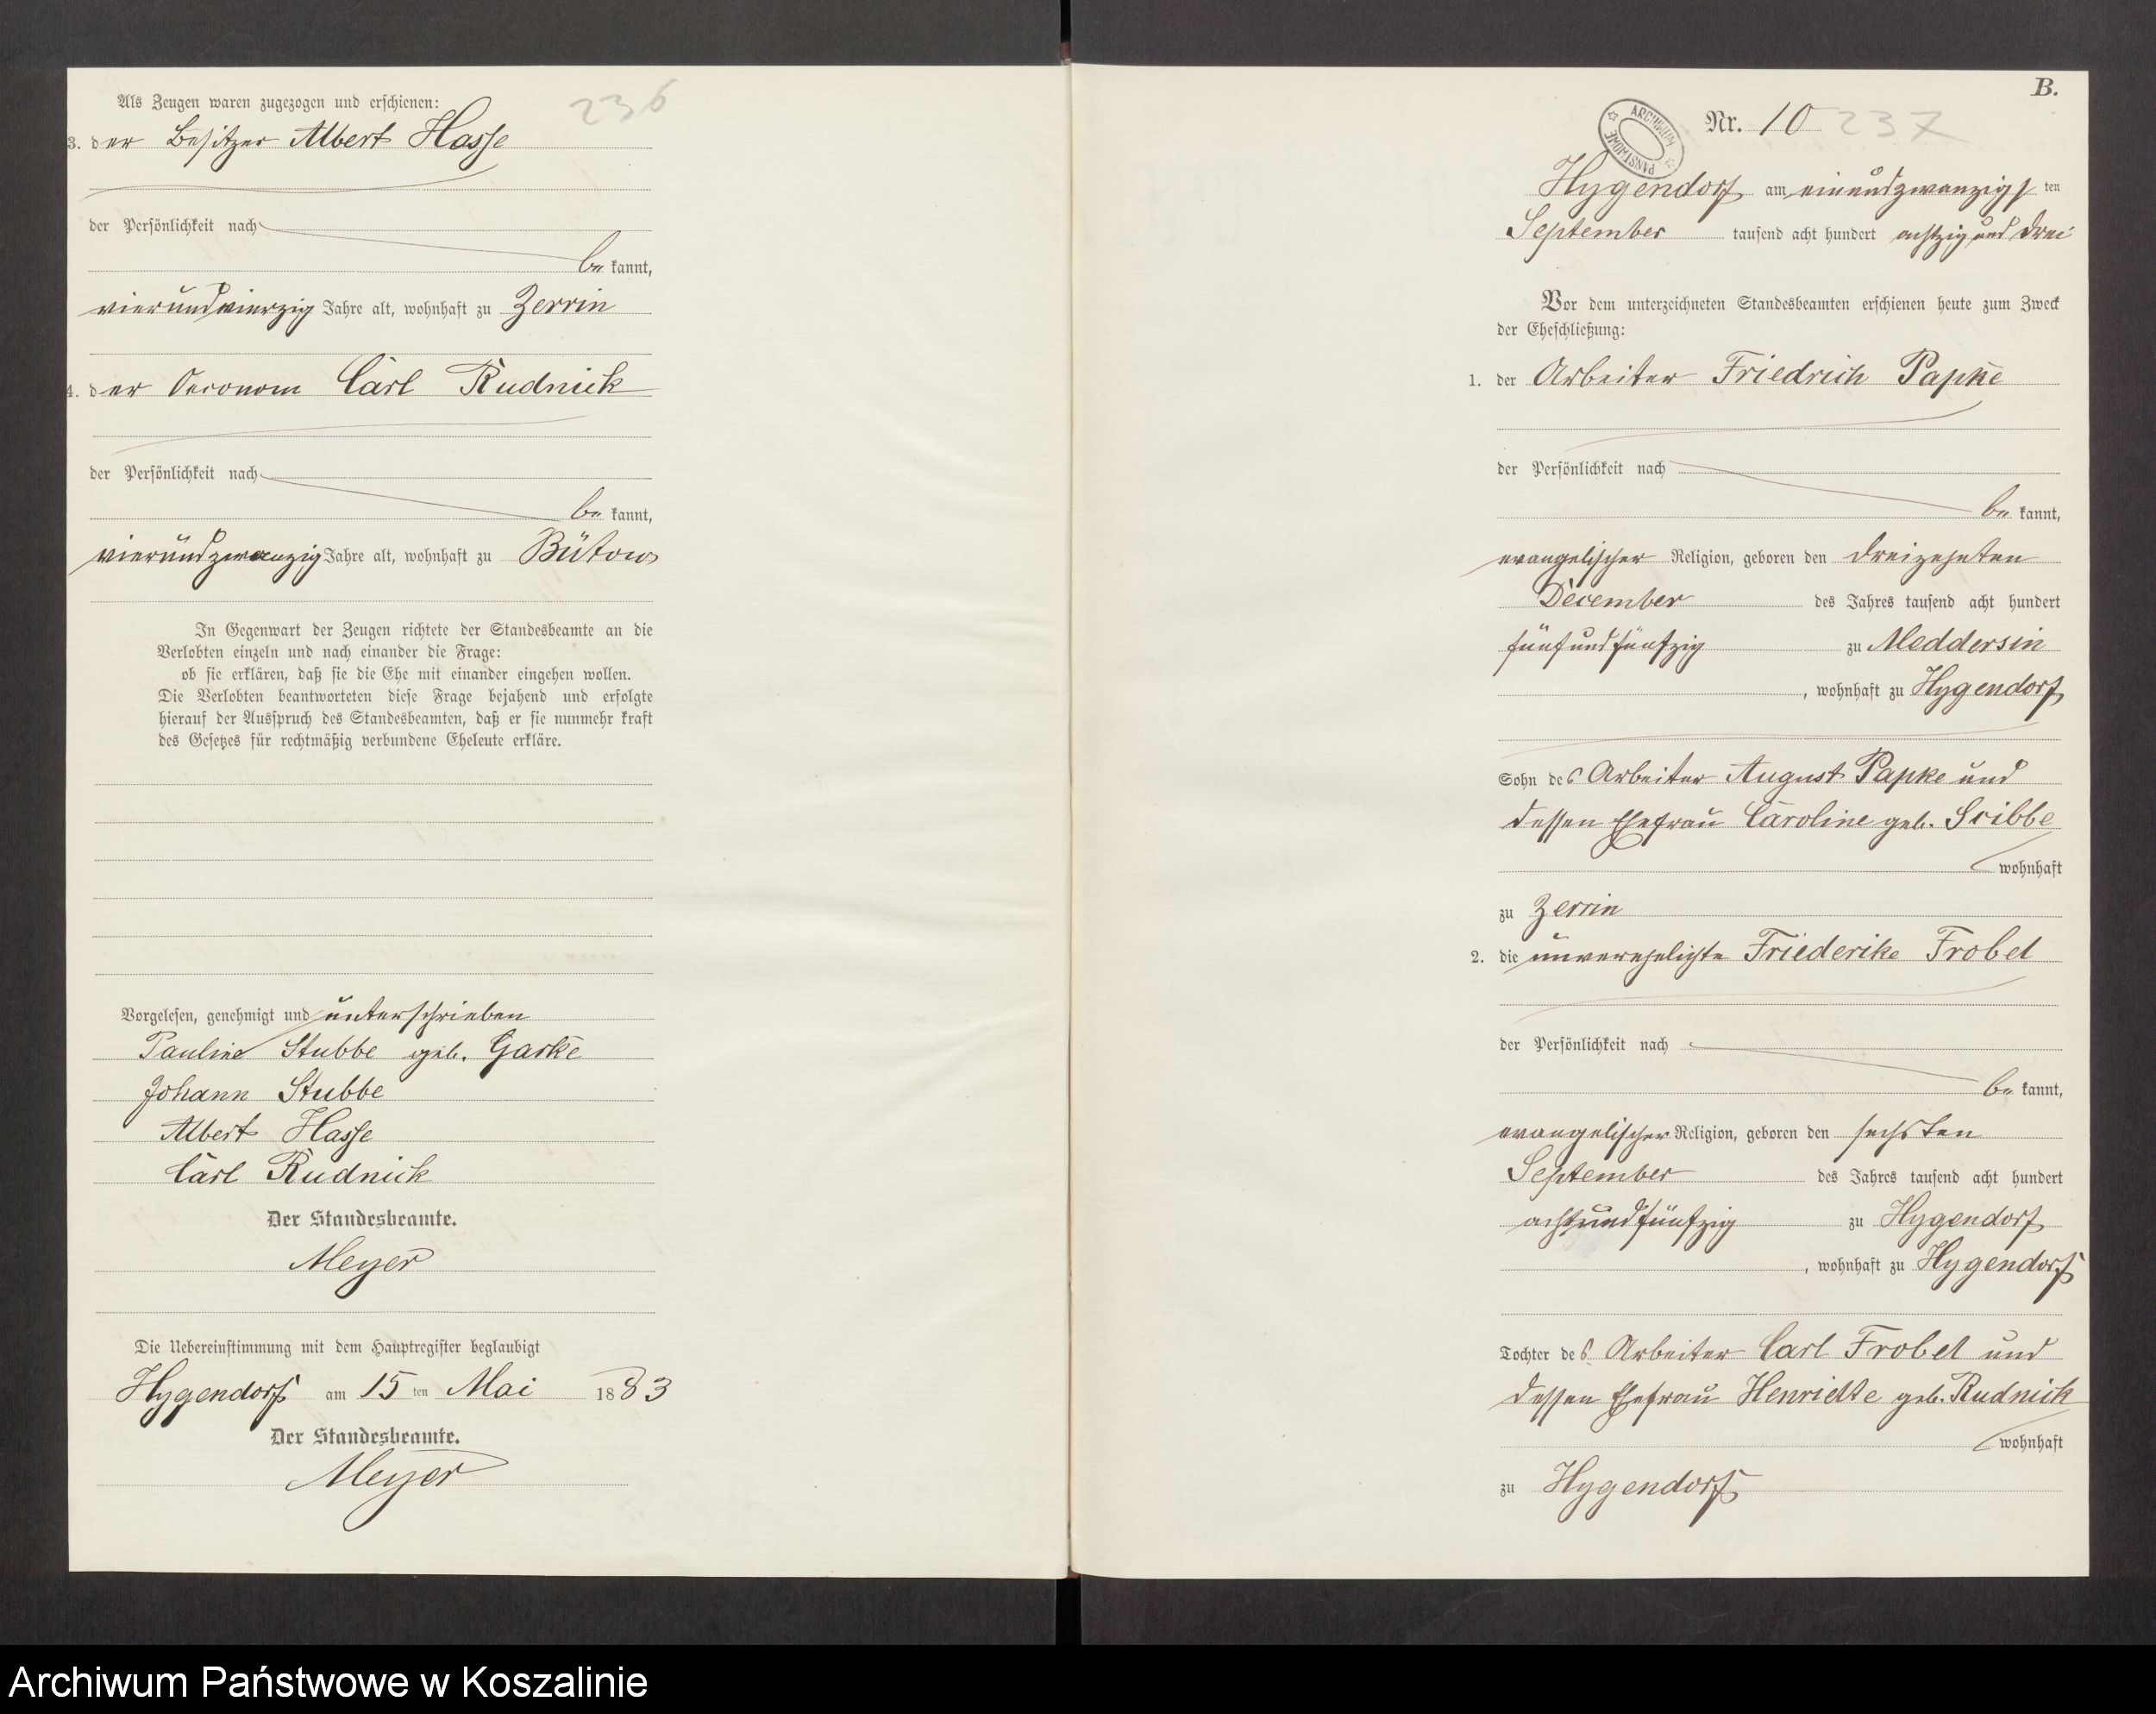 236
Als Zeugen waren zugezogen und erschienen:
3. der Besitzer Albert Hasse
der Persönlichkeit nach
be kannt,
vierundvierzig Jahre alt, wohnhaft zu Zerrin
4. der Oeconom Carl Rudnick
der Persönlichkeit nach
be kannt,
vierundzwanzig Jahre alt, wohnhaft zu Bütow
In Gegenwart der Zeugen richtete der Standesbeamte an die
Verlobten einzeln und nach einander die Frage:
ob sie erklären, daß sie die Ehe mit einander eingehen wollen.
Die Verlobten beantworteten diese Frage bejahend und erfolgte
hierauf der Ausspruch des Standesbeamten, daß er sie nunmehr kraft
des Gesetzes für rechtmäßig verbundene Eheleute erkläre.
Vorgelesen, genehmigt und unterschrieben
Pauline Stubbe geb. Garke
Johann Stubbe
Albert Hasse
Carl Rudnick
Der Standesbeamte.
Meyer
Die Uebereinstimmung mit dem Hauptregister beglaubigt
Hygendorf am 15 ten Mai 1883
Der Standesbeamte.
Meyer
B.
ARCHIWUM PAŃSTWOWE
Nr. 10 237
Hygendorf am einundzwanzigs ten
September tausend acht hundert achtzig und drei
Vor dem unterzeichneten Standesbeamten erschienen heute zum Zweck
der Eheschließung:
1. der Arbeiter Friedrich Papke
der Persönlichkeit nach
be kannt,
evangelischer Religion, geboren den dreizehnten
December des Jahres tausend acht hundert
fünfundfünfzig zu Meddersin
, wohnhaft zu Hygendorf
Sohn des Arbeiter August Papke und
dessen Ehefrau Caroline geb. Scibbe
wohnhaft
zu Zerrin
2. die unverehelichte Friederike Frobel
der Persönlichkeit nach
be kannt,
evangelischer Religion, geboren den sechsten
September des Jahres tausend acht hundert
achtundfünfzig zu Hygendorf
, wohnhaft zu Hygendorf
Tochter des Arbeiter Carl Frobel und
dessen Ehefrau Henriette geb. Rudnick
wohnhaft
zu Hygendorf
Archiwum Państwowe w Koszalinie